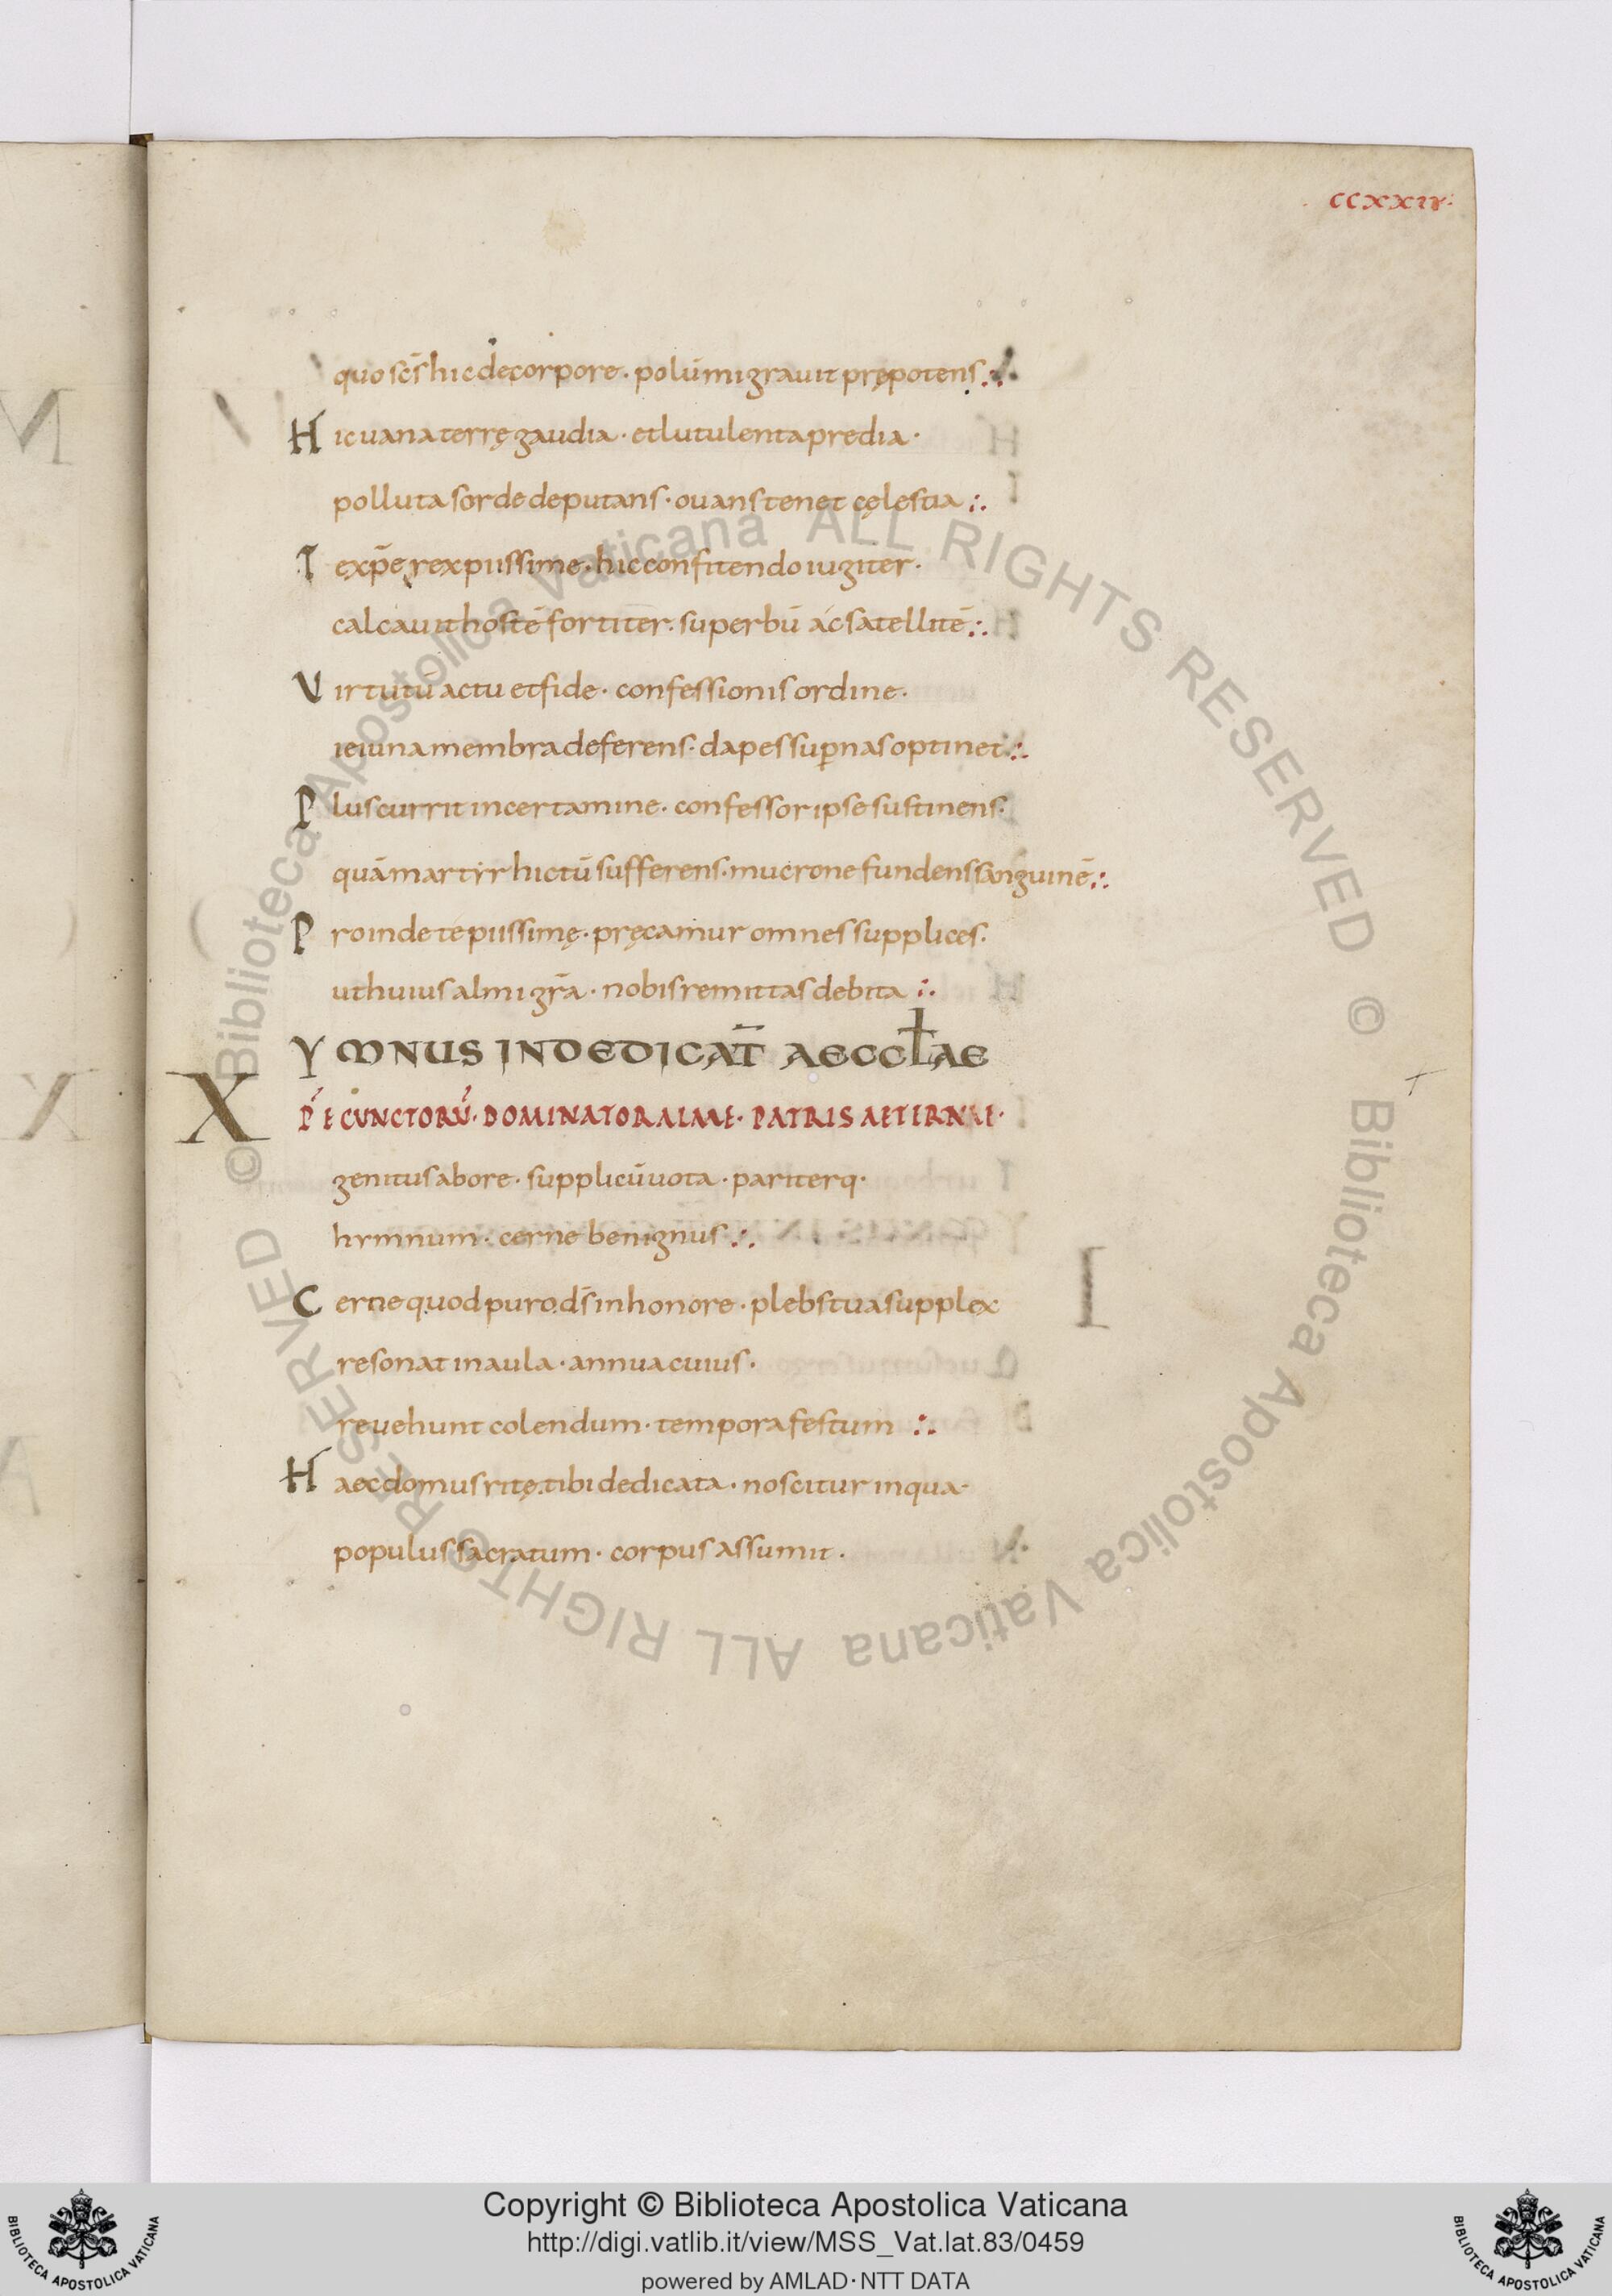 CCXXIV
quo scs̄ hic de corpore · polū migrauit prępotens ∴
Hic uana terrę gaudia · et lutulenta predia ·
polluta sorde deputans · ouans tenet cęlestia ∴
Te xpē rex piissime · hic confitendo iugiter ·
calcauit hostē fortiter · superbū ac satellitē ∴
Virtutū actu et fide · confessionis ordine ·
ieiuna membra deferens · dapes supnas optinet ∴
Plus currit in certamine · confessor ipse sustinens ·
quā martyr hictū sufferens · mucrone fundens sanguinē ∴
Proinde te piissimę · pręcamur omnes supplices ·
ut huius almi gr̄a · nobis remittas debita ∴
YMNUS IN DEDICAT̄ AECCLAE
XPE CUNCTORŪ · DOMINATOR ALME · PATRIS AETERNAE ·
genitus ab ore · supplicū uota · pariterq ·
hymnum · cerne benignus ∴
Cerne quod puro ds̄ in honore · plebs tua supplex
resonat in aula · annua cuius ·
reuehunt colendum · tempora festum ∴
Haec domus ritę tibi dedicata · noscitur in qua ·
populus sacratum · corpus assumit ·
© Biblioteca Apostolica Vaticana ALL RIGHTS RESERVED
© Biblioteca Apostolica Vaticana ALL RIGHTS RESERVED
BIBLIOTECA APOSTOLICA VATICANA
Copyright © Biblioteca Apostolica Vaticana
http://digi.vatlib.it/view/MSS_Vat.lat.83/0459
powered by AMLAD · NTT DATA
BIBLIOTECA APOSTOLICA VATICANA